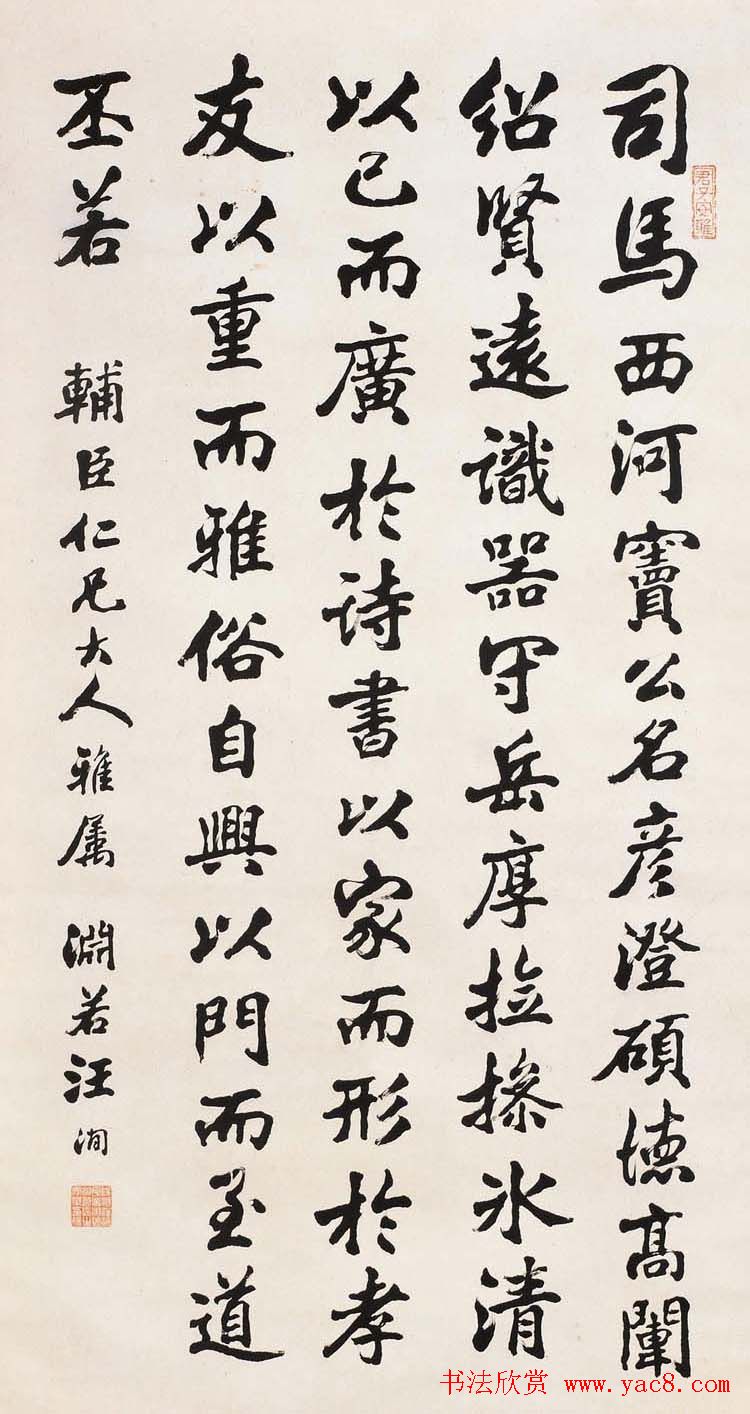 司馬西河竇公名彥澄碩德髙闡
紹賢遠識器守岳厚撿操氷清
以己而廣於詩書以家而形於孝
友以重而雅俗自興以門而至道
丕若 輔臣仁兄大人雅屬 淵若汪洵
君子安雅
书法欣赏 www.yac8.com